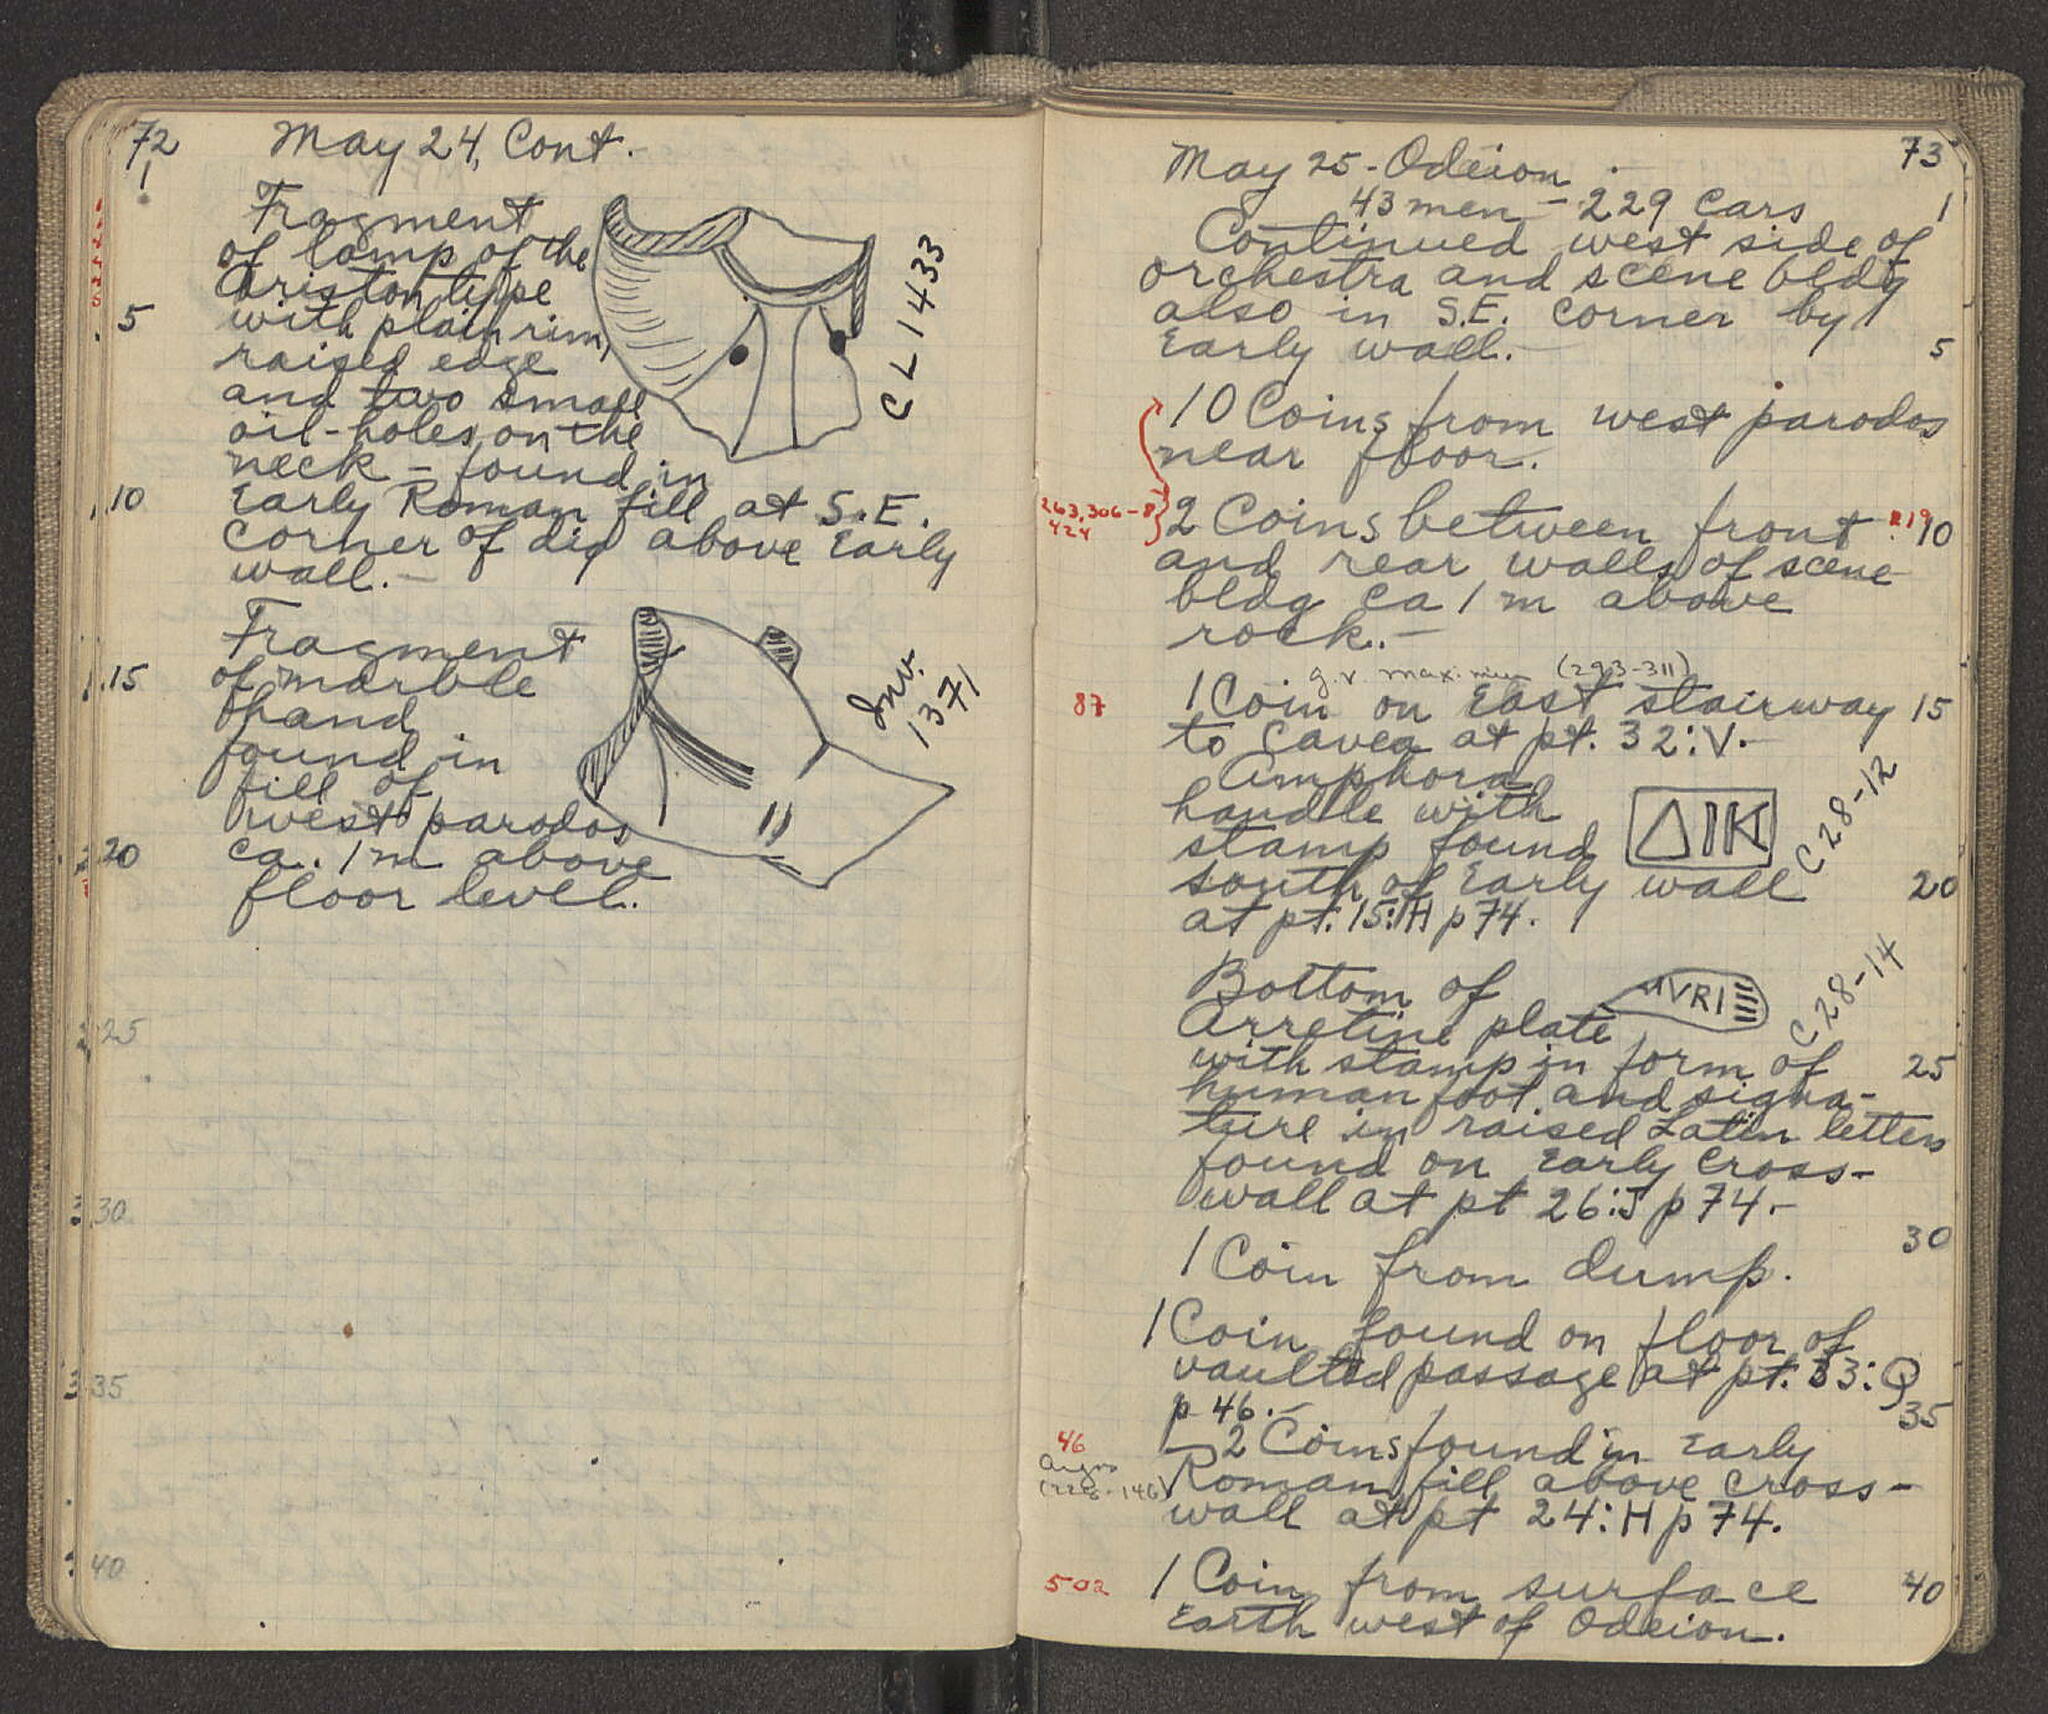 72
May 24, Cont.
1
Fragment
of lamp of the
Ariston type
5
with plain rim,
raised edge
and two small
oil-holes on the
neck - found in
10
Early Roman fill at S.E.
corner of dig above Early
wall.-
CL1433
Fragment
15
of marble
hand
found in
fill of
west parodos
20
ca. 1 m above
floor level.
Inv.
1371
25
30
35
40
73
May 25 - Odeion
43 men - 229 cars
1
Continued west side of
orchestra and scene bldg
also in S.E. corner by
Early wall.-
5
10 Coins from west parodos
near floor.
263, 306-8
424
2 Coins between front
10
and rear walls of scene
bldg ca 1 m above
rock.-
(293-311)
87
1 Coin on East stairway
15
to Cavea at pt. 32:V.-
Amphora
handle with
stamp found
ΔΙΚ
C 28-12
south of Early wall
20
at pt. 15:H p 74.
Bottom of
Arretine plate
VRI
C 28-14
with stamp in form of
25
human foot and signa-
ture in raised Latin letters
found on Early cross-
wall at pt 26:J p 74.-
30
1 Coin from dump.
1 Coin found on floor of
vaulted passage at pt. 33:Q
p 46.-
35
46
Argos
2 Coins found in Early
Roman fill above cross-
wall at pt 24:H p 74.
502
1 Coin from surface
40
Earth west of Odeion.